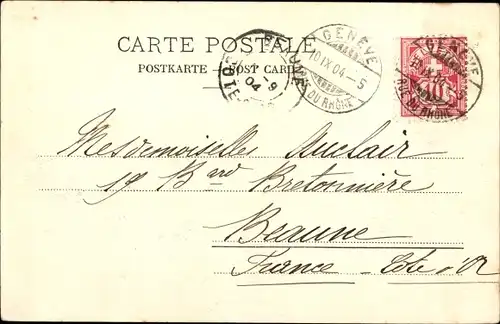 CARTE POSTALE
POSTKARTE — POST CARD
GENÈVE
10 IX 04 - 5
RUE DU RHÔNE
BEAUNE
9
04
GENÈVE
10 IX 04 - 5
RUE DU RHÔNE
10
Mesdemoiselles Auclair
19 Bard Bretonnière
Beaune
France - Côte d'Or